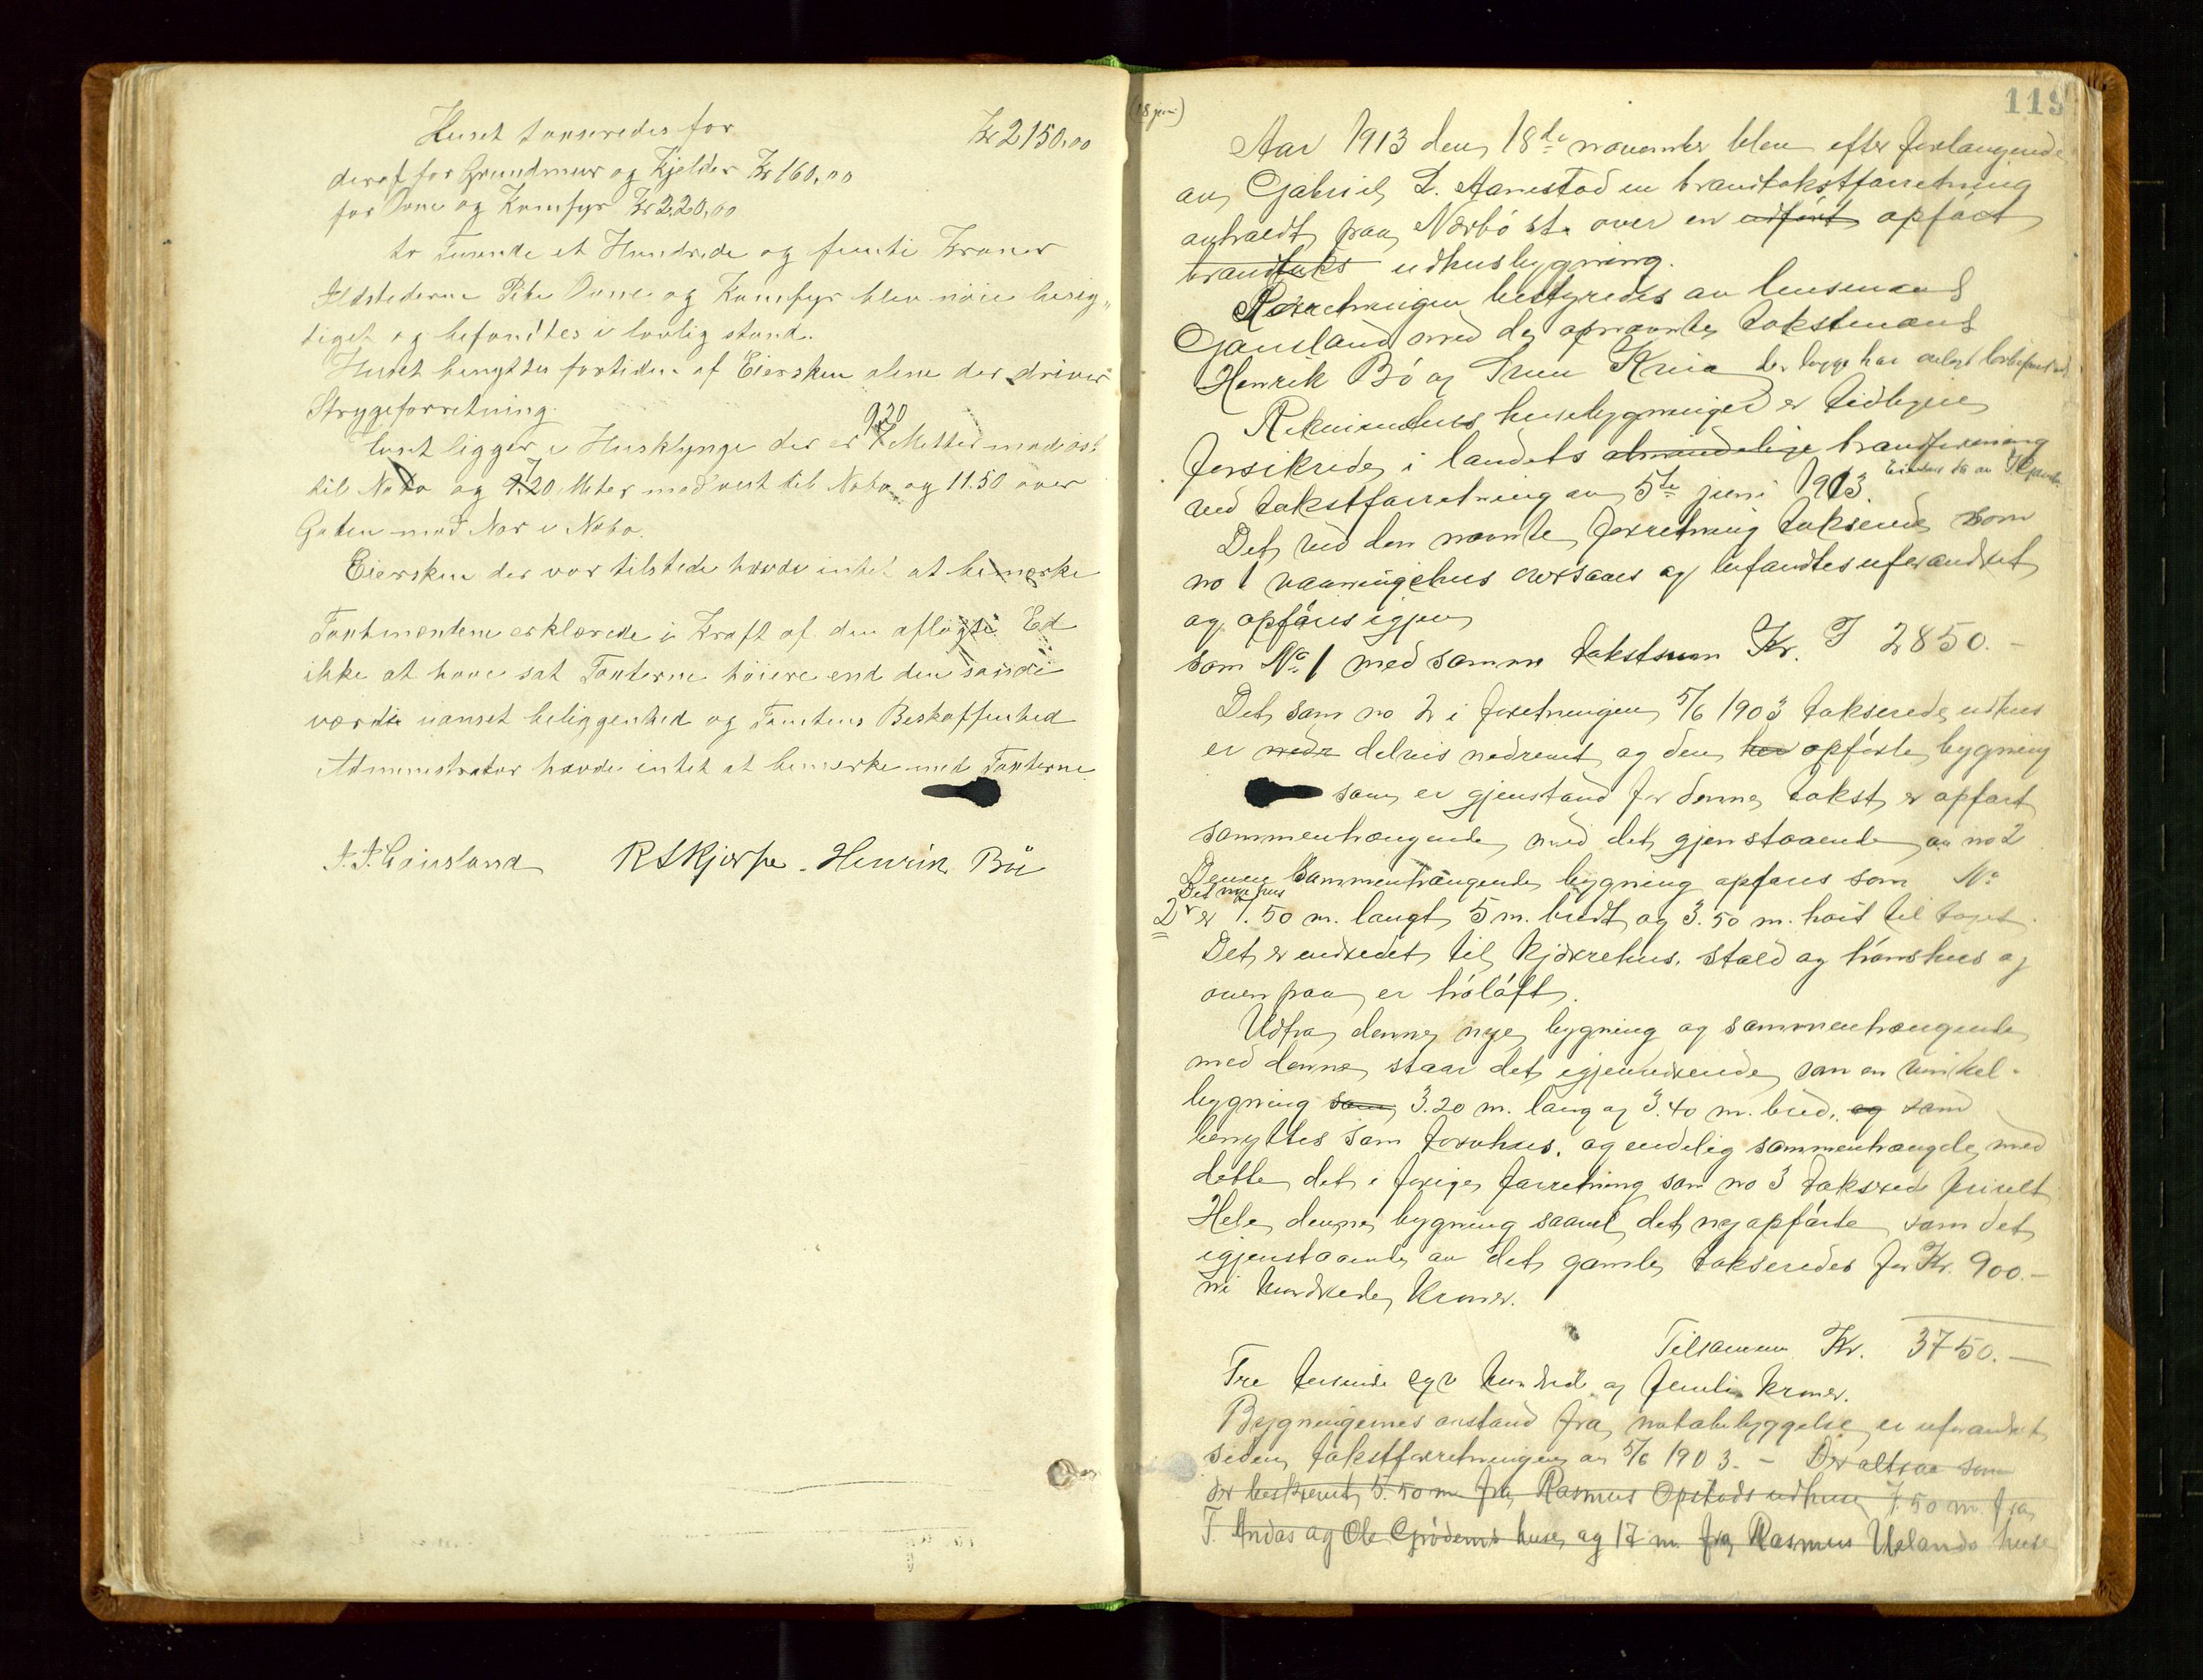 Huset taxseredes for Kr 2150,00
deraf for Grundmur og Kjelder Kr 160,00
for Ovne og Komfyr Kr 220,00
to Tusende et Hundrede og femti Kroner
Ildstederne Pibe Ovne og Komfyr blev nöie besig„
tiget og befandtes i lovlig stand.
Huset benyttes fortiden af Eiersken alene der driver
Strygeforretning.
Huset ligger i Husklynge der er 9,20 Metter mod öst
til Nabo og 7.20 Meter mod vest til Nabo og 11.50 over
Gaden mod Nor i Nabo.
Eiersken der var tilstede havde intet at bemerke
Taxtmændene erklærede i Kraft af den aflagte Ed
ikke at have sat Taxterne höiere end den sande
værdi uanset beliggenhed og Tomtens Beskaffenhed
Administrator havde intet at bemerke med Taxterne
Gausland R S Kjosse. Henrik Bö
119
(18 juni)
Aar 1913 den 18de november blev efter forlangende
av Gabriel L. Aanestad en brandtakstforretning
avholdt paa Nærbö st. over en udfört opfört
brandtaks udhusbygning.
Forretningen bestyredes av lensmand
Gausland med de opnævnte takstmænd
Henrik Bö og Sven Kvia der begge har avlagt
Rekvirentens husebygninger er tidligere
forsikrede i landets almindelige brandforsikring
ved takstforretning av 5te juni 1913.
Det ved den nævnte forretning takserede som
no 1 vaaningshus oversaaes og befandtes uforandret
og opföres igjen
som No 1 med samme takstsum Kr. 2850.-
Det som no 2 i forretningen 5/6 1903 takserede udhus
er nedr delvis nedrevet og den her opförte bygning
som er gjenstand for denne takst er opfört
sammenhængende med det gjenstaaende av no 2
Denne sammenhængende bygning opföres som No
Det nye hus
2 er 7.50 m. langt 5 m. bredt og 3.50 m. höit til taget.
Det er indredet til kjörrehus, stald og hönshus og
ovenpaa er höloft.
Udfra denne nye bygning og sammenhængende
med denne staar det igjenværende som en vinkel-
bygning som 3.20 m. lang og 3.40 m. bred, og som
benyttes som torvhus, og endelig sammenhængde med
dette det i forige forretning som no 3 taksered privet
Hele denne bygning saavel det nyopförte som det
igjenstaaende av det gamle takseredes for Kr. 900.-
ni hundrede Kroner.
Tilsammen Kr. 3750.-
Tre tusinde syv hundred og femti kroner.
Bygningernes avstand fra nabobebyggelse er uforandret
siden takstforretningen av 5/6 1903. - Der altsaa som
der beskrevet 5.50 m fra Rasmus Opstads udhus 7.50 m. fra
T. Andas og Ole Grödems huse og 17 m fra Rasmus Uelands huse